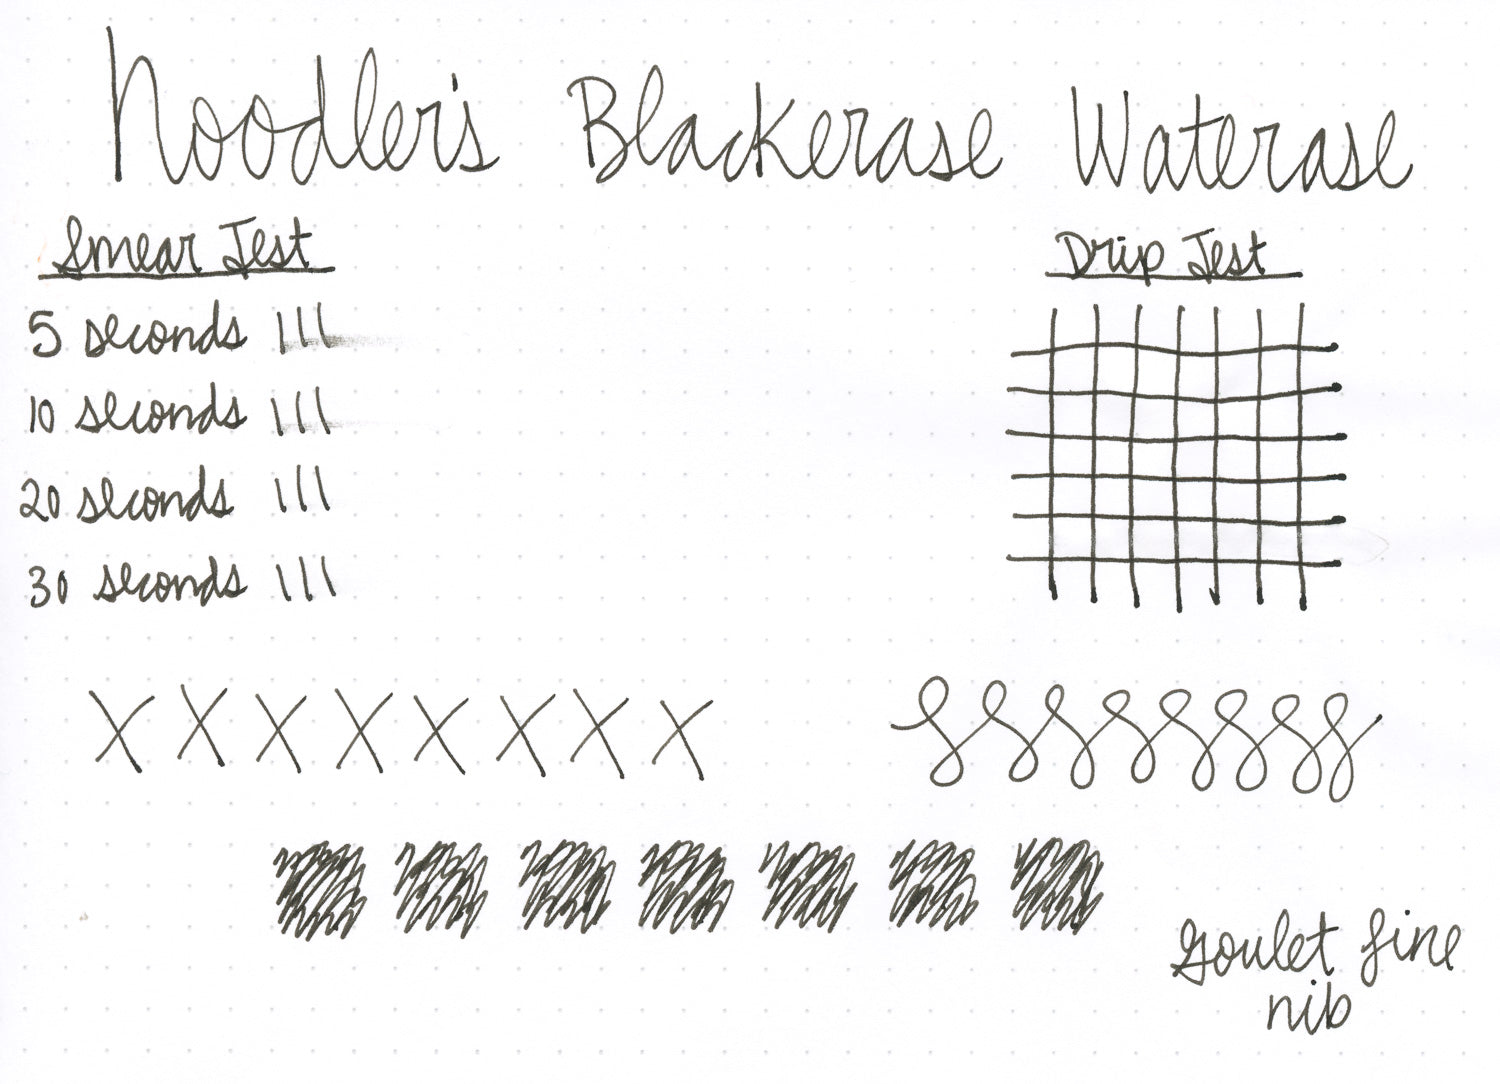 Noodler's Blackerase Waterase
Smear Test
Drip Test
5 seconds
10 seconds
20 seconds
30 seconds
Goulet fine
nib